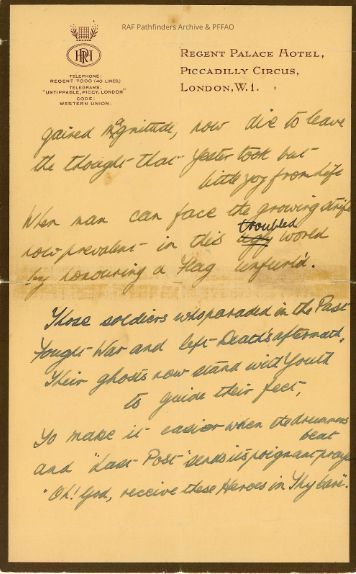 RAF Pathfinders Archive & PFFAO
RPH
TELEPHONE:
REGENT 7000 (40 LINES)
TELEGRAMS:
"UNTIPPABLE, PICCY, LONDON"
CODE:
WESTERN UNION.
REGENT PALACE HOTEL,
PICCADILLY CIRCUS,
LONDON, W.1.
gained, now die to leave
the thought that Yester took but
little joy from life
When man can face the growing strife
now prevalent in this troubled ugly world
by honouring a Flag unfurl'd.
Those soldiers who paraded in the Past
Fought War and left Death's aftermath,
Their ghosts now stand with Youth
to guide their feet,
To make it easier when the drummers
beat
and "Last Post" sends its poignant pray
"Oh! God, receive these Heroes in Thy care".